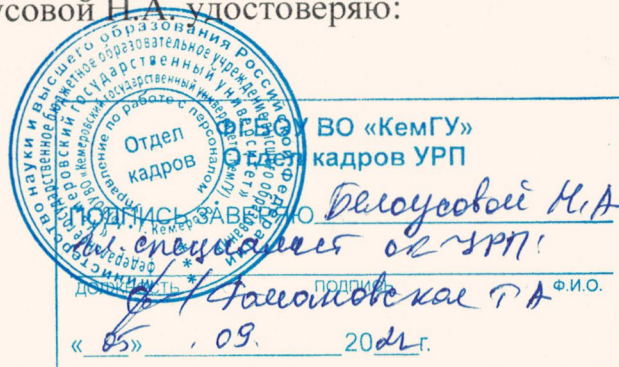 усовой Н.А. удостоверяю:
Министерство науки и высшего образования Российской Федерации
федеральное государственное бюджетное образовательное учреждение высшего образования
«Кемеровский государственный университет»
ФГБОУ ВО «Кемеровский государственный университет», КемГУ, г. Кемерово
Управление по работе с персоналом
Отдел
кадров
ФГБОУ ВО «КемГУ»
Отдел кадров УРП
ПОДПИСЬ ЗАВЕРЯЮ Белоусовой Н.А
Гл. специалист ОК УРП
должность подпись Ф.И.О.
Т А
«05» 09. 20 г.